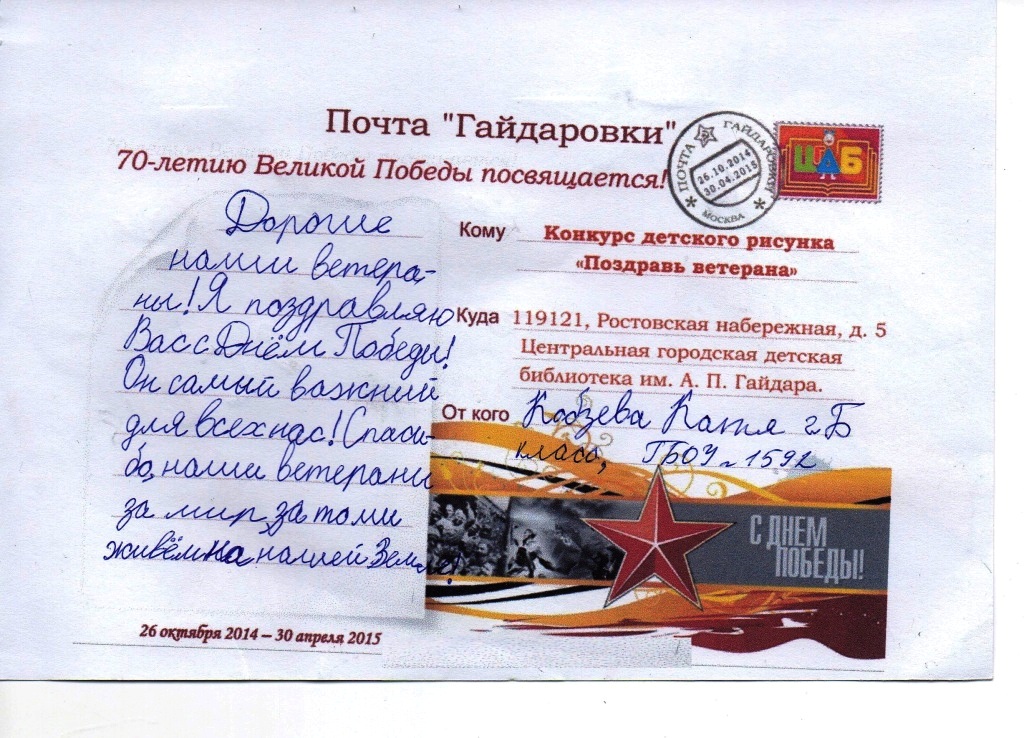 Почта "Гайдаровки"
70-летию Великой Победы посвящается!
ПОЧТА ГАЙДАРОВКИ
26.10.2014
30.04.2015
МОСКВА
ЦДБ
Дорогие
наши ветера-
ны! Я поздравляю
Вас с Днём Победы!
Он самый важний
для всех нас! Спаси-
бо, наши ветерани
за мир, за то ми
живём на нашей Земле!
26 октября 2014 – 30 апреля 2015
Кому Конкурс детского рисунка
«Поздравь ветерана»
Куда 119121, Ростовская набережная, д. 5
Центральная городская детская
библиотека им. А. П. Гайдара.
От кого Кобзева Катя 2 Б
класс, ГБОУ 1592
С ДНЕМ
ПОБЕДЫ!